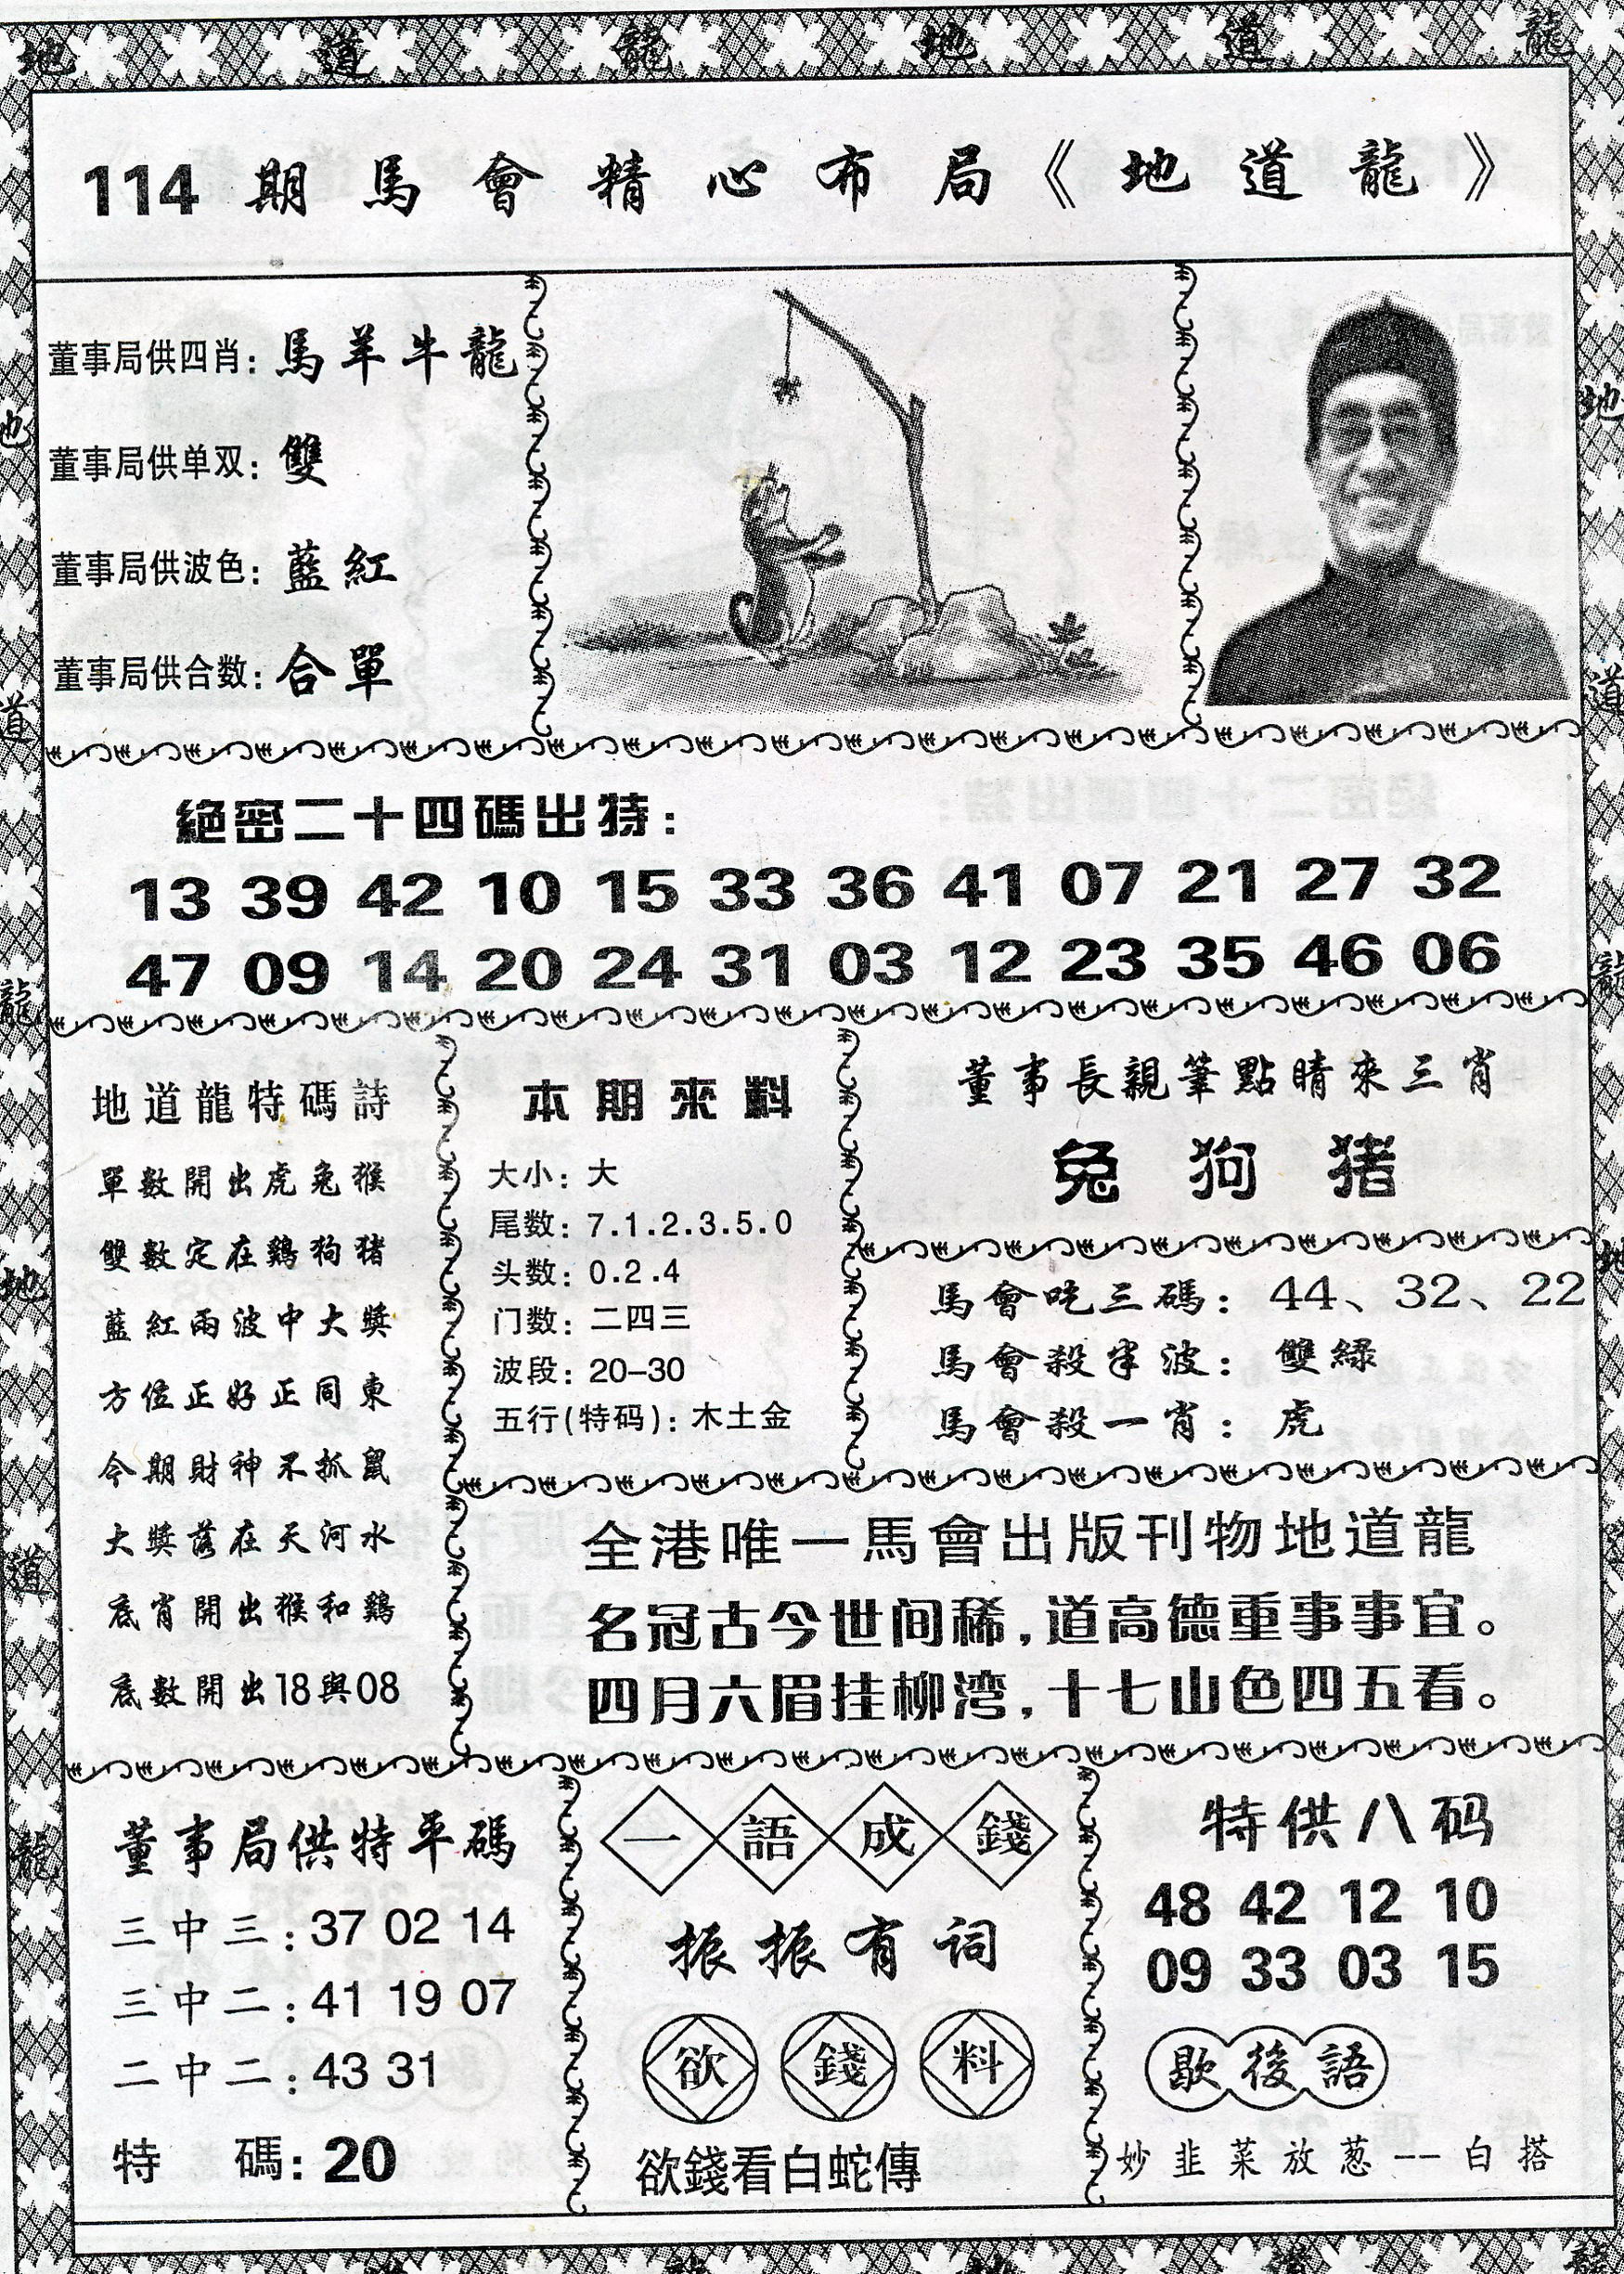 地 道 龍 地 道 龍
114 期 馬 會 精 心 布 局 《 地 道 龍 》
董事局供四肖: 馬 羊 牛 龍
董事局供单双: 雙
董事局供波色: 藍 紅
董事局供合数: 合 單
絕密二十四碼出特:
13 39 42 10 15 33 36 41 07 21 27 32
47 09 14 20 24 31 03 12 23 35 46 06
地道龍特碼詩
單數開出虎兔猴
雙數定在鷄狗猪
藍紅兩波中大獎
方位正好正同東
今期財神不抓鼠
大獎落在天河水
底肖開出猴和鷄
底數開出18與08
本期來料
大小: 大
尾数: 7.1.2.3.5.0
头数: 0.2.4
门数: 二四三
波段: 20-30
五行(特码): 木土金
董事長親筆點睛來三肖
兔 狗 猪
馬會吃三碼: 44、32、22
馬會殺半波: 雙綠
馬會殺一肖: 虎
全港唯一馬會出版刊物地道龍
名冠古今世间稀,道高德重事事宜。
四月六眉挂柳湾,十七山色四五看。
董事局供特平碼
三中三: 37 02 14
三中二: 41 19 07
二中二: 43 31
特 碼: 20
一語成錢
振振有词
欲錢料
欲錢看白蛇傳
特供八码
48 42 12 10
09 33 03 15
歇後語
妙韭菜放葱--白搭